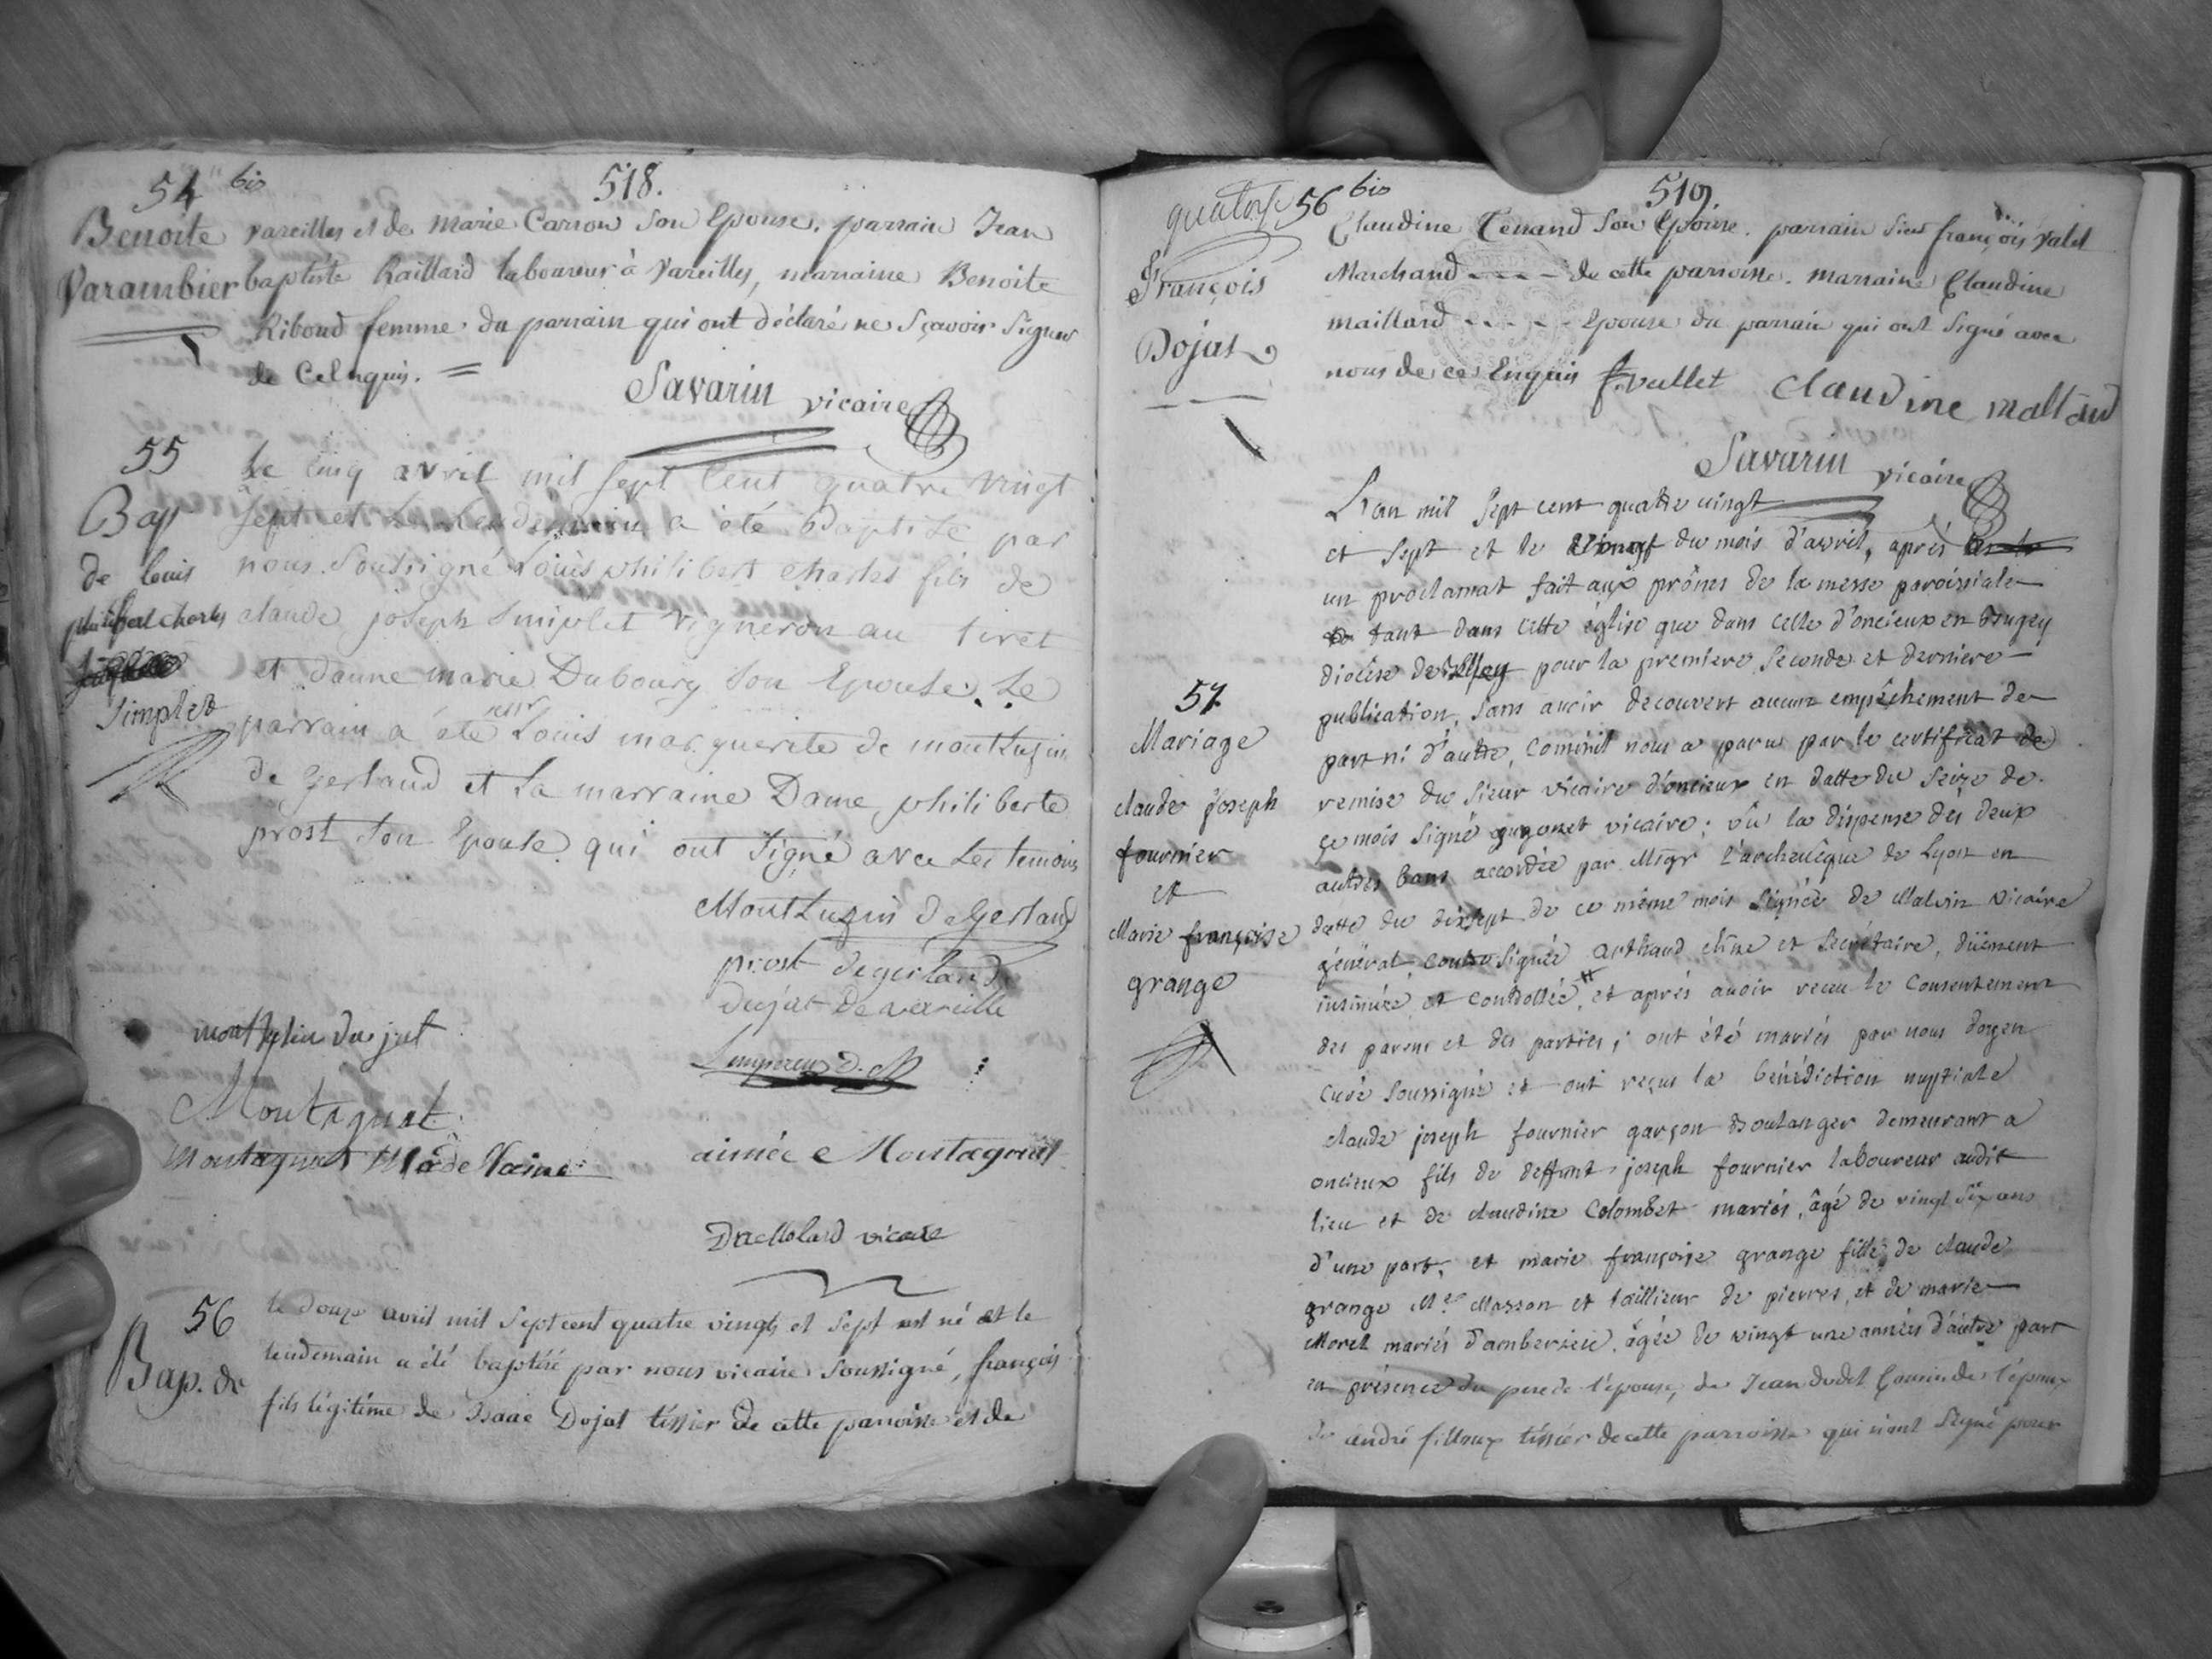 54 bis
518.
Benoite
Varambier
vareilles et de Marie Carron son Epouse. parrain Jean
baptiste Raillard laboureur à Vareilles, marraine Benoite
Riboud femme du parrain qui ont déclaré ne sçavoir signer
de ce enquis.
Savarin vicaire
55
Bap
de louis
philibert charles
Simplet
Le cinq avril mil sept cent quatre vingt
sept et le lendemain a été Baptisé par
nous soussigné Louis philibert charles fils de
claude joseph Simplet vigneron au tiret
et danne marie Dubourg son Epouse. Le
parrain a été Louis marguerite de montluzin
de Gerland et la marraine Dame philiberte
prost son Epouse qui ont signé avec les temoins
Montluzin de Gerland
prost de gerland
dujat de vareille
montluzin dujat
Montagnat
aimée Montagnat
Montagnat
Dumolard vicaire
56
Bap. de
le douze avril mil sept cent quatre vingts et sept est né et le
lendemain a été baptisé par nous vicaire soussigné, françois
fils légitime de Isaac Dojat tissier de cette parroisse et de
quatorze
56 bis
519.
François
Dojat
Claudine Tenand son Epouse. parrain sieur françois valet
Marchand - - - - de cette parroisse. marraine Claudine
maillard - - - - Epouse du parrain qui ont signé avec
nous de ce Enquis
f. vallet
claudine mallard
Savarin vicaire
57.
Mariage
claude joseph
fournier
et
Marie françoise
grange
L'an mil sept cent quatre vingt
et sept et le du mois d'avril, après
un proclamat fait aux prônes de la messe paroissiale
tant dans cette église que dans celle d'oncieux en Bugey
diocèse de Belley pour la premiere, seconde et derniere
publication, sans avoir decouvert aucun empêchement de
part ni d'autre, comm'il nous a paru par le certificat de
remise du sieur vicaire d'oncieux en datte du seize de
ce mois signé guzonet vicaire; vû la dispense des deux
autres bans accordée par Mgr l'archevêque de Lyon en
datte du dixsept de ce même mois signée de Malvin vicaire
général, contresignée arthaud et secrétaire, düement
insinuée et controllée, et après avoir reçeu le consentement
des parens et des parties; ont été mariés par nous doyen
curé soussigné et ont reçus la bénédiction nuptiale
claude joseph fournier garçon Boulanger demeurant a
oncieux fils de deffunt joseph fournier laboureur audit
lieu et de claudine Colombet mariés, âgé de vingt six ans
d'une part; et marie françoise grange fille de claude
grange Me Masson et tailleur de pierres, et de marie
Moret mariés d'amberieu, âgée de vingt une années d'autre part
en présence du pere de l'épouse, de Jean dodet Cousin de l'époux
de andré fillioux tissier de cette parroisse qui n'ont signé pour